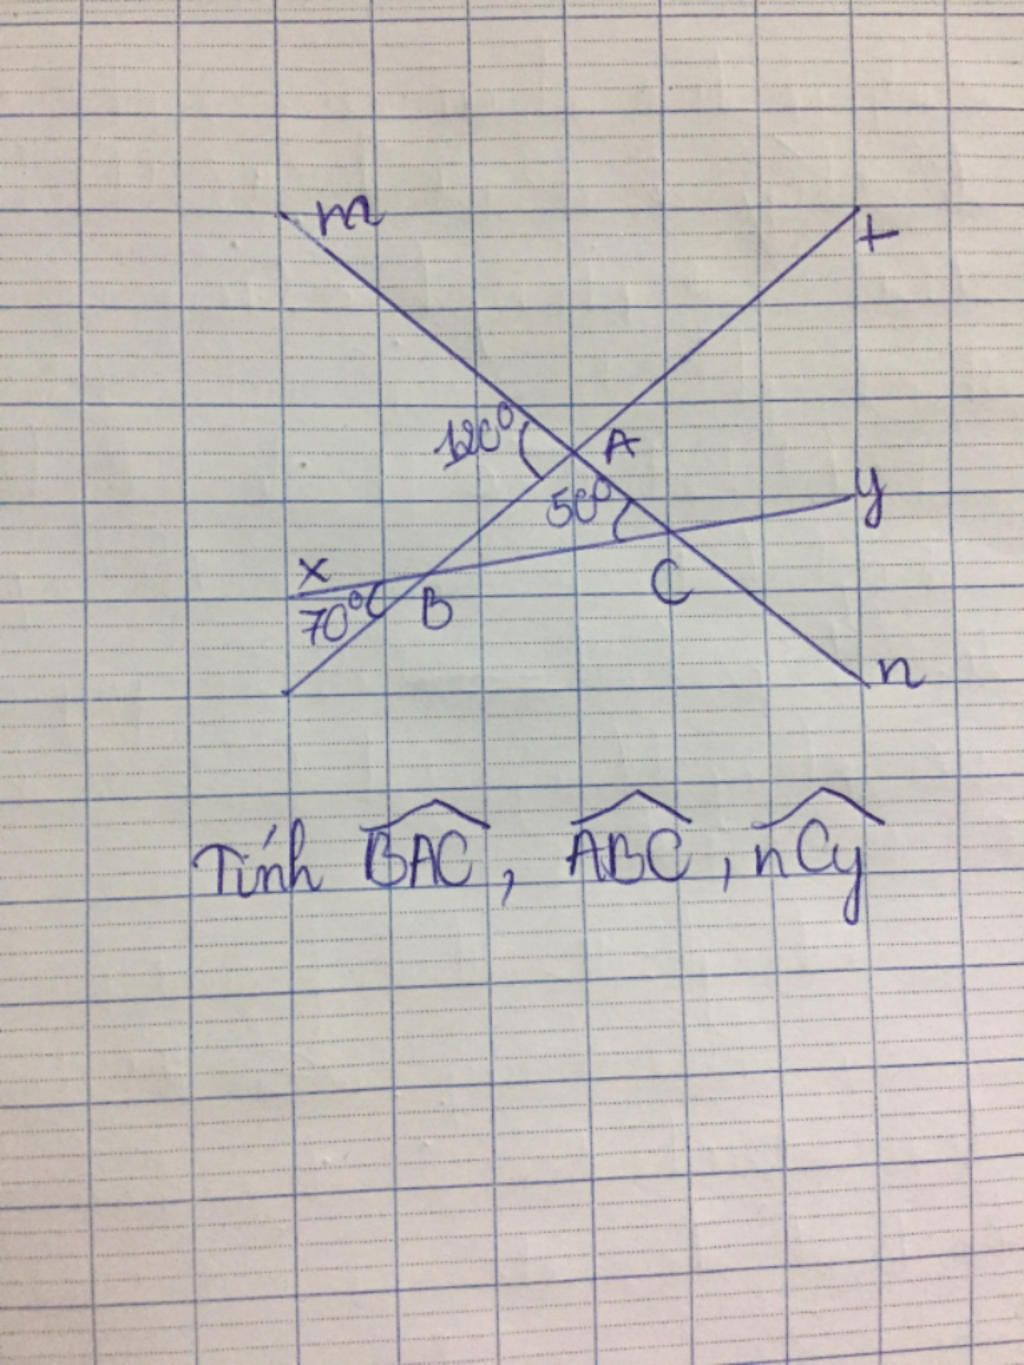 m
t
120°
A
50°
y
x
C
70°
B
n
Tính BAC, ABC, nCy